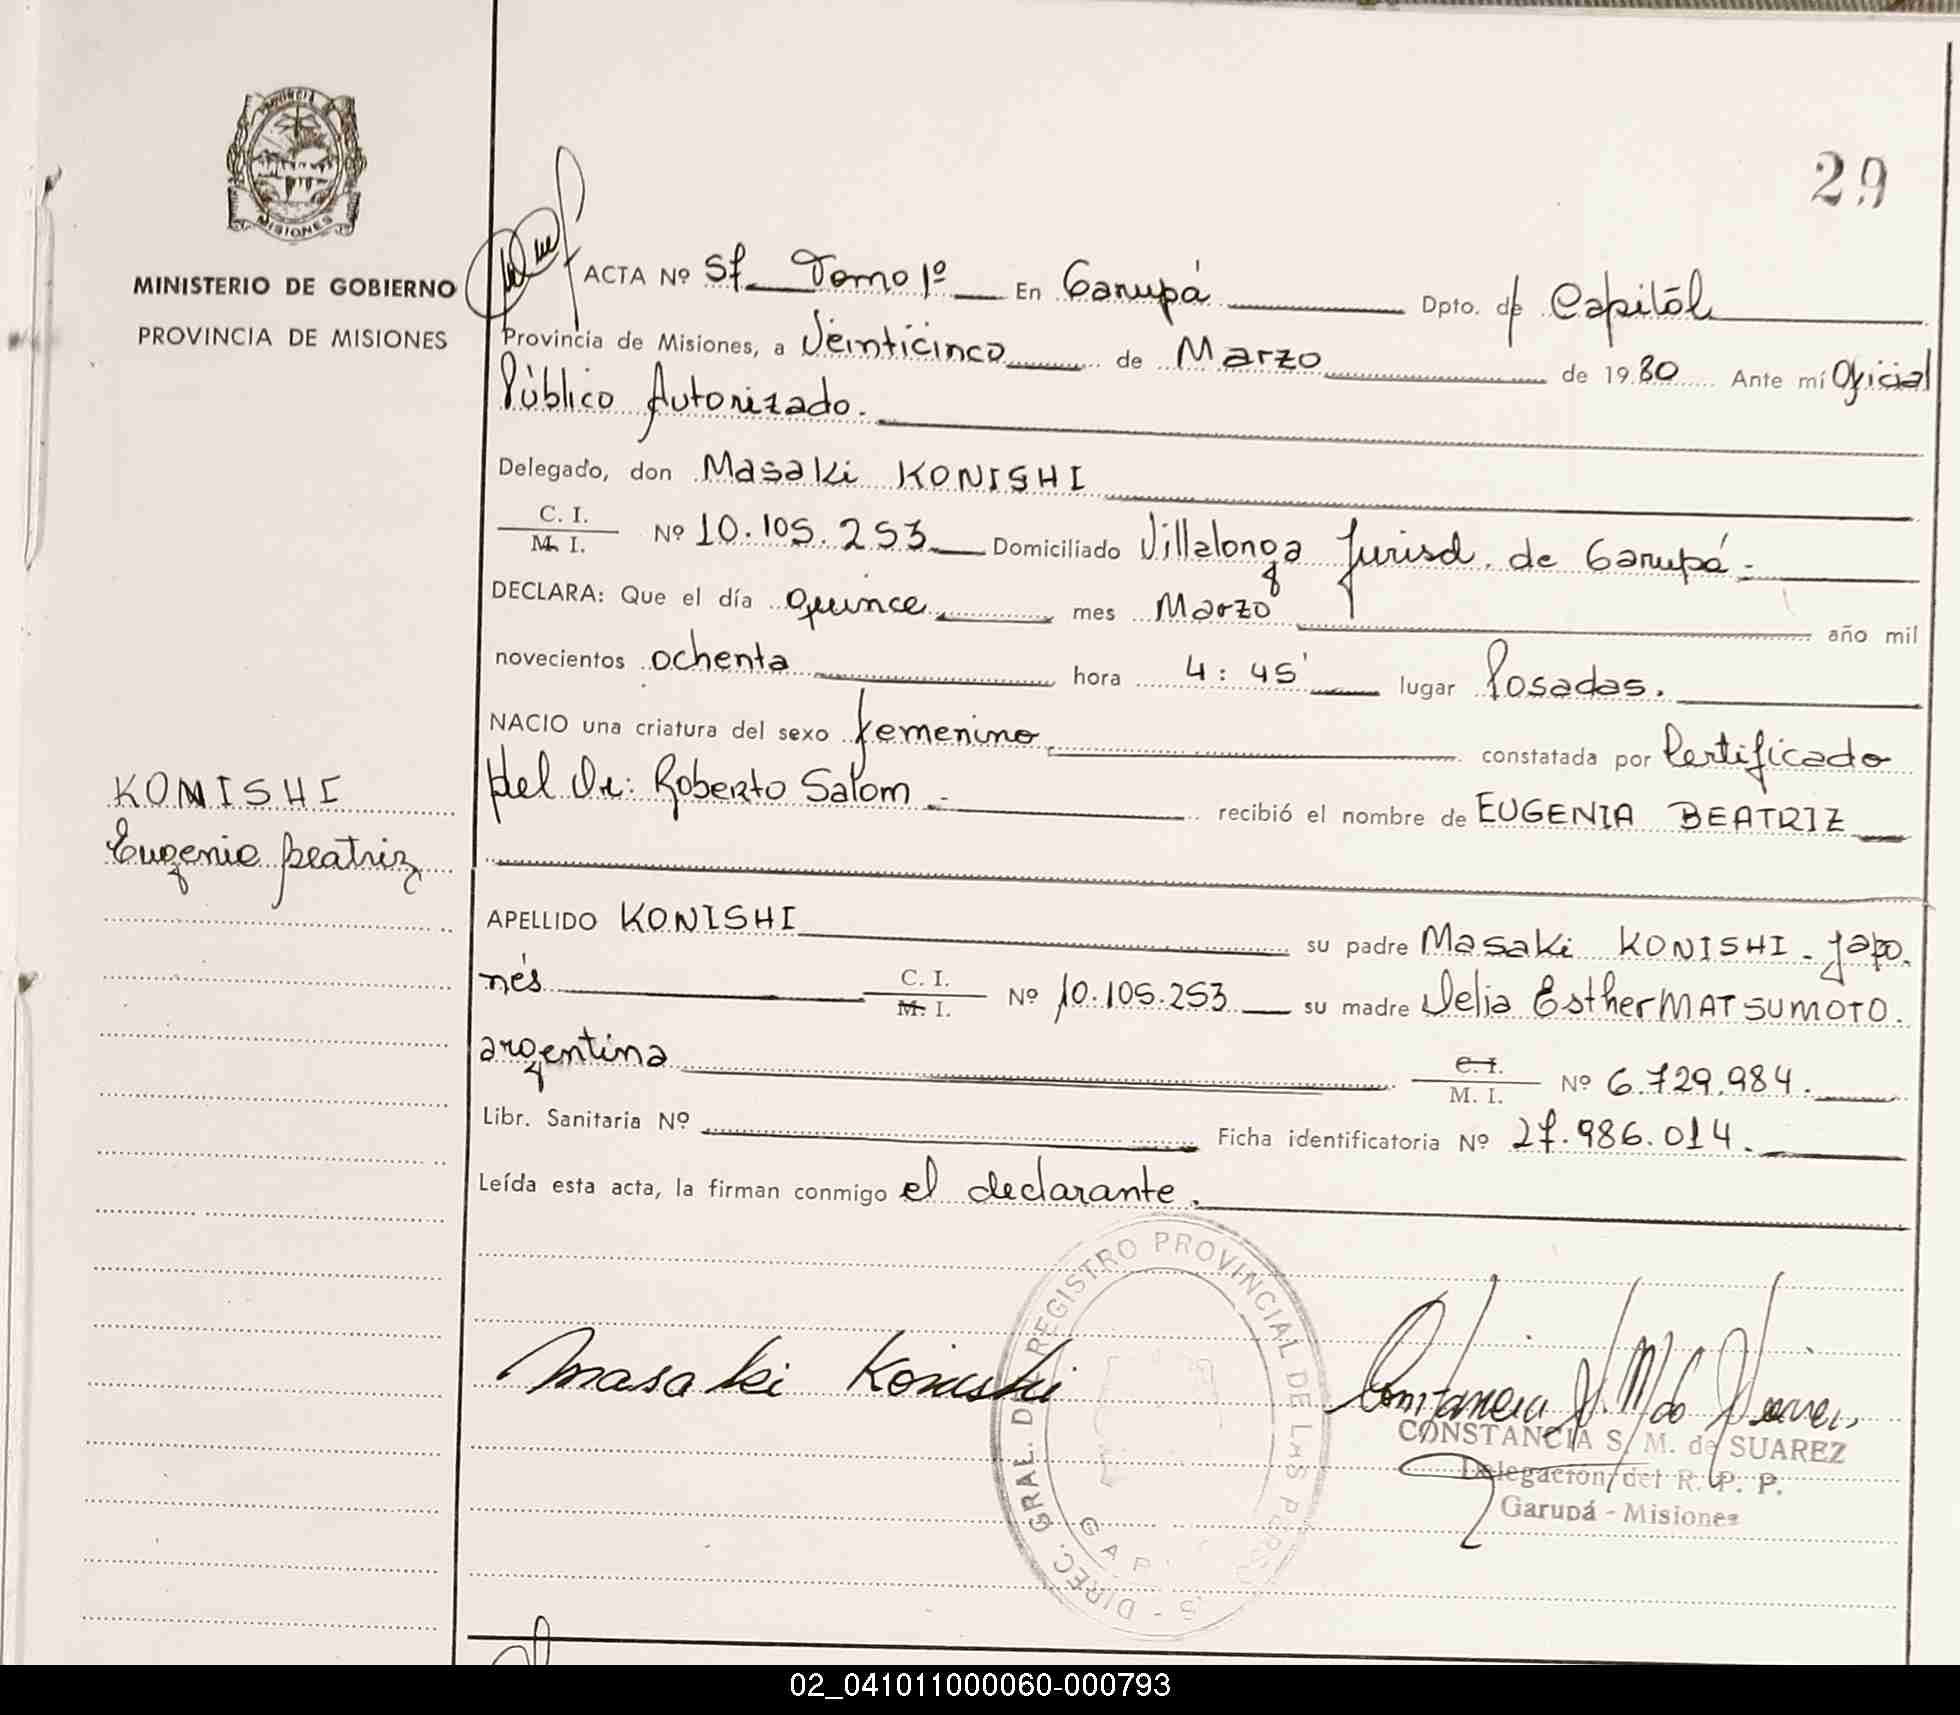 PROVINCIA DE
MISIONES
MINISTERIO DE GOBIERNO
PROVINCIA DE MISIONES
KONISHI
Eugenia Beatriz
29
ACTA Nº 57 Tomo 1º En Garupá Dpto. de Capital
Provincia de Misiones, a Veinticinco de Marzo de 1980 Ante mí Oficial
Público Autorizado.
Delegado, don Masaki KONISHI
C. I.
M. I. Nº 10.105.253 Domiciliado Villalonga Jurisd. de Garupá.-
DECLARA: Que el día quince mes Marzo año mil
novecientos ochenta hora 4:45' lugar Posadas.
NACIO una criatura del sexo femenino constatada por Certificado
del Dr: Roberto Salom.- recibió el nombre de EUGENIA BEATRIZ
APELLIDO KONISHI su padre Masaki KONISHI - japo.
nés C. I.
M. I. Nº 10.105.253 su madre Delia Esther MATSUMOTO.
argentina C. I.
M. I. Nº 6.729.984.
Libr. Sanitaria Nº Ficha identificatoria Nº 27.986.014.
Leída esta acta, la firman conmigo el declarante.
DIREC. GRAL. DEL REGISTRO PROVINCIAL DE LAS PERS
Masaki Konishi
CONSTANCIA S. M. de SUAREZ
Delegación del R. P. P.
Garupá - Misiones
02_041011000060-000793